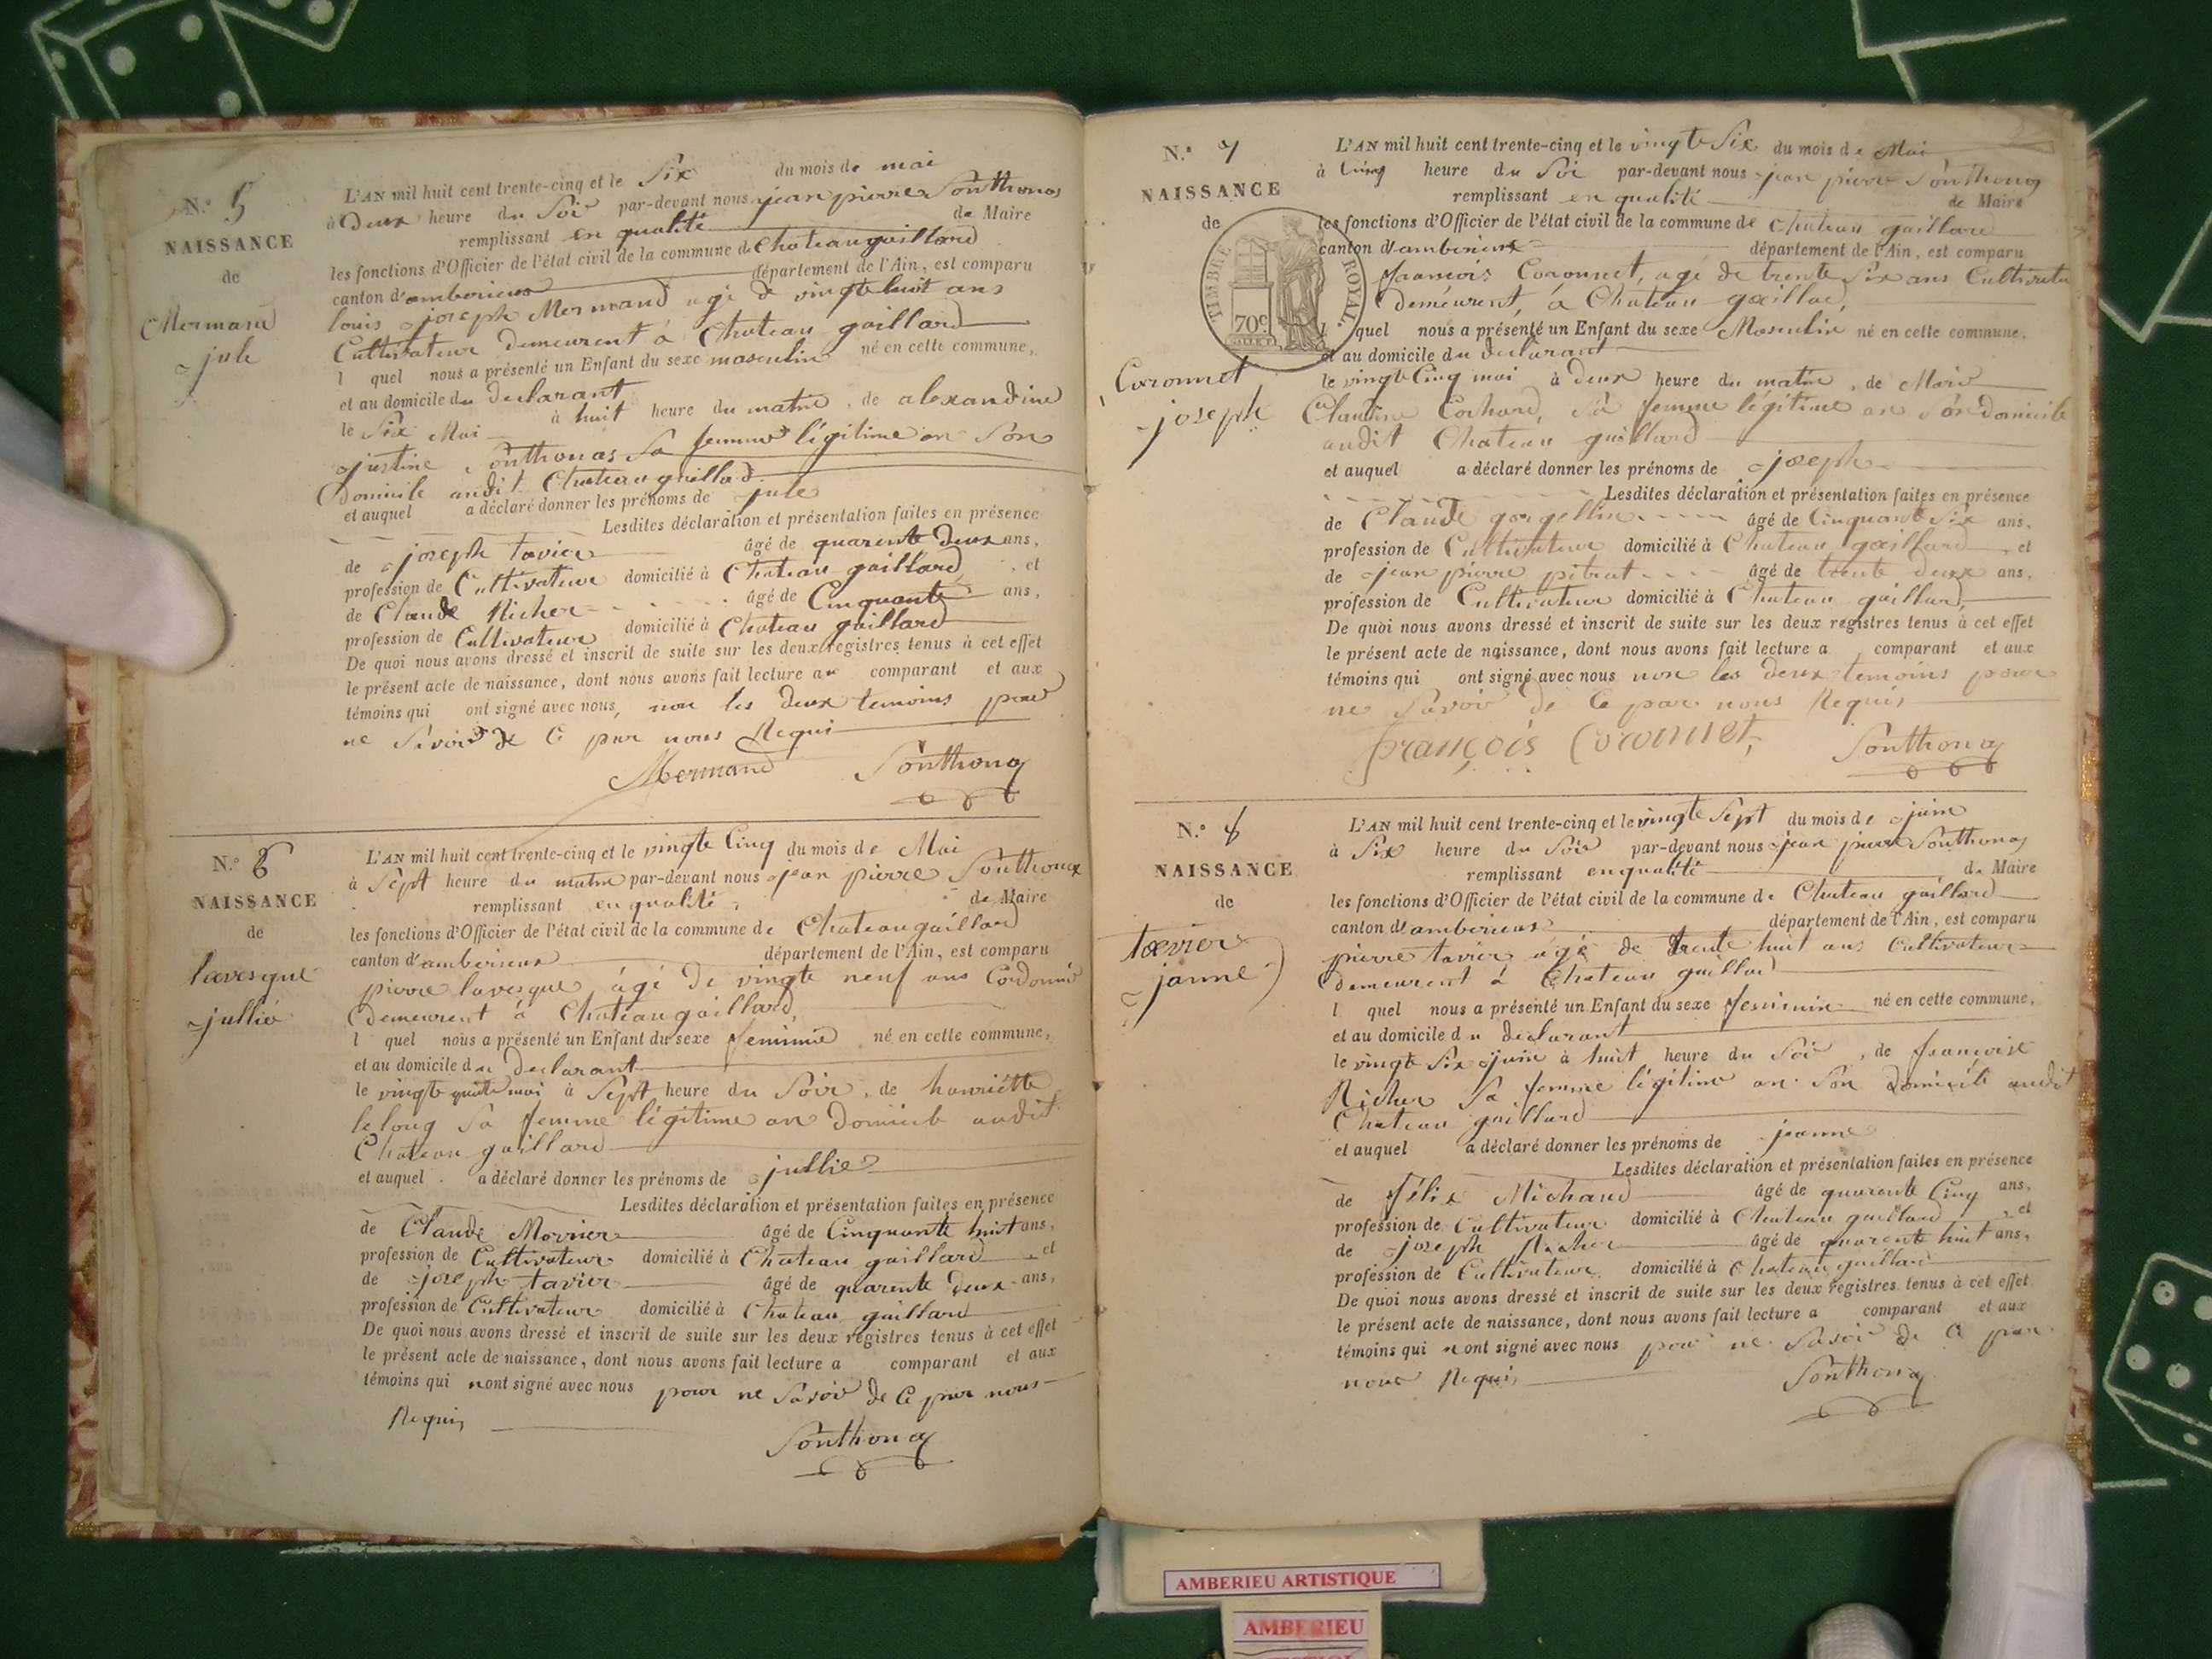 N.° 5
NAISSANCE
de
Mermand
jule
L'AN mil huit cent trente-cinq et le Six du mois de mai
à Deux heure du Soir par-devant nous jean pierre Sonthonas
remplissant en qualité de Maire
les fonctions d'Officier de l'état civil de la commune de Chateaugaillard
canton d'amberieux département de l'Ain, est comparu
louis joseph Mermand agé de vingt huit ans
Cultivateur demeurent à Chateau gaillard
l quel nous a présenté un Enfant du sexe masculin né en cette commune,
et au domicile du declarant
le Six Mai à huit heure du matin, de alexandine
justine Sonthonas Sa femme légitime an Son
Domicile audit Chateau gaillad
et auquel a déclaré donner les prénoms de jule
Lesdites déclaration et présentation faites en présence
de joseph tavier âgé de quarente deux ans,
profession de Cultivateur domicilié à Chateau gaillard, et
de Claude Richer âgé de Cinquante ans,
profession de Cultivateur domicilié à Chateau gaillard
De quoi nous avons dressé et inscrit de suite sur les deux registres tenus à cet effet
le présent acte de naissance, dont nous avons fait lecture au comparant et aux
témoins qui ont signé avec nous, non les deux temoins pour
ne Savoir de Ce par nous Requi
Mermand Sonthonas
N.° 6
NAISSANCE
de
lavesque
jullie
L'AN mil huit cent trente-cinq et le vingte Cinq du mois de Mai
à Sept heure du matin par-devant nous jean pierre Sonthonax
remplissant en qualité de Maire
les fonctions d'Officier de l'état civil de la commune de Chateaugaillard
canton d'amberieux département de l'Ain, est comparu
pierre lavesque, âgé de vingte neuf ans Cordonnié
demeurent à Chateaugaillard,
l quel nous a présenté un Enfant du sexe feminin né en cette commune,
et au domicile du Declarant
le vingte quatre mai à Sept heure du Soir, de henriette
lelong Sa femme légitime an Domicile audit
Chateau gaillard
et auquel a déclaré donner les prénoms de jullie
Lesdites déclaration et présentation faites en présence
de Claude Morrier âgé de Cinquante huit ans,
profession de Cultivateur domicilié à Chateau gaillard, et
de joseph tavier âgé de quarente deux ans,
profession de Cultivateur domicilié à Chateau gaillard
De quoi nous avons dressé et inscrit de suite sur les deux registres tenus à cet effet
le présent acte de naissance, dont nous avons fait lecture a comparant et aux
témoins qui nont signé avec nous pour ne Savoir de Ce par nous
Requis
Sonthonas
N.° 7
NAISSANCE
de
TIMBRE ROYAL
70c
Coronnet
joseph
L'AN mil huit cent trente-cinq et le vingte Six du mois de Mai
à Cinq heure du Soir par-devant nous jean pierre Sonthonas
remplissant en qualité de Maire
les fonctions d'Officier de l'état civil de la commune de Chateau gaillard
canton d'amberieux département de l'Ain, est comparu
françois Coronnet, agé de trente Six ans Cultivateur
demeurent, à Château gaillad,
l quel nous a présenté un Enfant du sexe Masculin né en cette commune,
et au domicile du declarant
le vingte Cinq mai à deux heure du matin, de Marie
Claudine Cochard, Sa femme légitime an Son domicile
audit Chateau gaillard
et auquel a déclaré donner les prénoms de joseph
Lesdites déclaration et présentation faites en présence
de Claude âgé de Cinquante Six ans,
profession de Cultivateur domicilié à Chateau gaillard, et
de jean pierre pitrat âgé de trente deux ans,
profession de Cultivateur domicilié à Chateau gaillard,
De quoi nous avons dressé et inscrit de suite sur les deux registres tenus à cet effet
le présent acte de naissance, dont nous avons fait lecture a comparant et aux
témoins qui ont signé avec nous non les deux temoins pour
ne Savoir de Ce par nous Requis
françois Coronnet, Sonthonas
N.° 8
NAISSANCE
de
tavier
janne
L'AN mil huit cent trente-cinq et le vingte Sept du mois de juin
à Six heure du Soir par-devant nous jean pierre Sonthonas
remplissant en qualité de Maire
les fonctions d'Officier de l'état civil de la commune de Chateau gaillard
canton d'amberieux département de l'Ain, est comparu
pierre tavier agé de trente huit ans Cultivateur
demeurent à Chateau gaillad
l quel nous a présenté un Enfant du sexe feminin né en cette commune,
et au domicile du declarant
le vingte Six juin à huit heure du Soir, de françoise
Richer Sa femme légitime an Son Domicile audit
Chateau gaillard
et auquel a déclaré donner les prénoms de jeanne
Lesdites déclaration et présentation faites en présence
de félix Michaud âgé de quarente Cinq ans,
profession de Cultivateur domicilié à Chateau gaillard, et
de joseph Richer âgé de quarente huit ans,
profession de Cultivateur domicilié à Chateau gaillard
De quoi nous avons dressé et inscrit de suite sur les deux registres tenus à cet effet
le présent acte de naissance, dont nous avons fait lecture a comparant et aux
témoins qui nont signé avec nous pour ne Savoir de Ce par
nous Requis
Sonthonas
AMBERIEU ARTISTIQUE
AMBERIEU